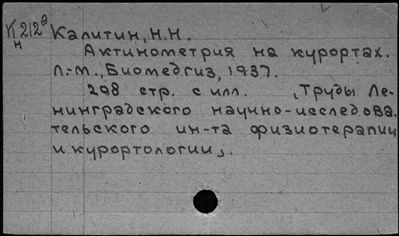 К212а Калитин, Н.Н.
н
Актинометрия на курортах.
Л.-М., Биомедгиз, 1937.
208 стр. с илл. „Труды Ле-
нинградского научно-исследова-
тельского ин-та физиотерапии
и курортологии„.